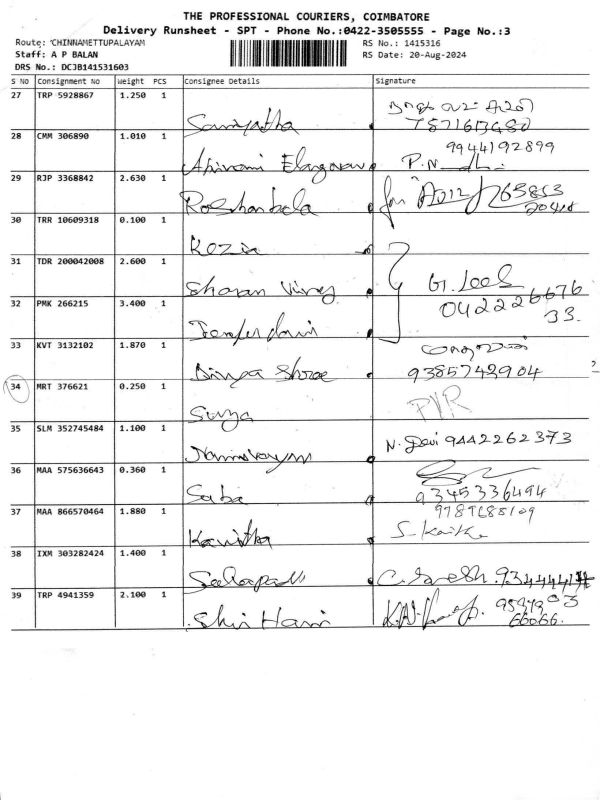 THE PROFESSIONAL COURIERS, COIMBATORE
Delivery Runsheet - SPT - Phone No.:0422-3505555 - Page No.:3
Route: CHINNAMETTUPALAYAM RS No.: 1415316
Staff: A P BALAN RS Date: 20-Aug-2024
DRS No.: DC3B141531603
S No Consignment No Weight PCS Consignee Details Signature
27 TRP 5928867 1.250 1
Saniyatha
28 CMM 306890 1.010 1 9944192899
Abirami P.N
29 RJP 3368842 2.630 1
Roshanbela for
30 TRR 10609318 0.100 1
Rezia
31 TDR 200042008 2.600 1
Sharan G. Leel
32 PMK 266215 3.400 1 042226676
33.
33 KVT 3132102 1.870 1
Divya Shree 9385743904
34 MRT 376621 0.250 1
Surya PVR
35 SLM 352745484 1.100 1
N. Devi 9442262373
36 MAA 575636643 0.360 1
Saba 9345336494
37 MAA 866570464 1.880 1
Kavitha S. 
38 IXM 303282424 1.400 1
39 TRP 4941359 2.100 1
Shri Hari 66066.